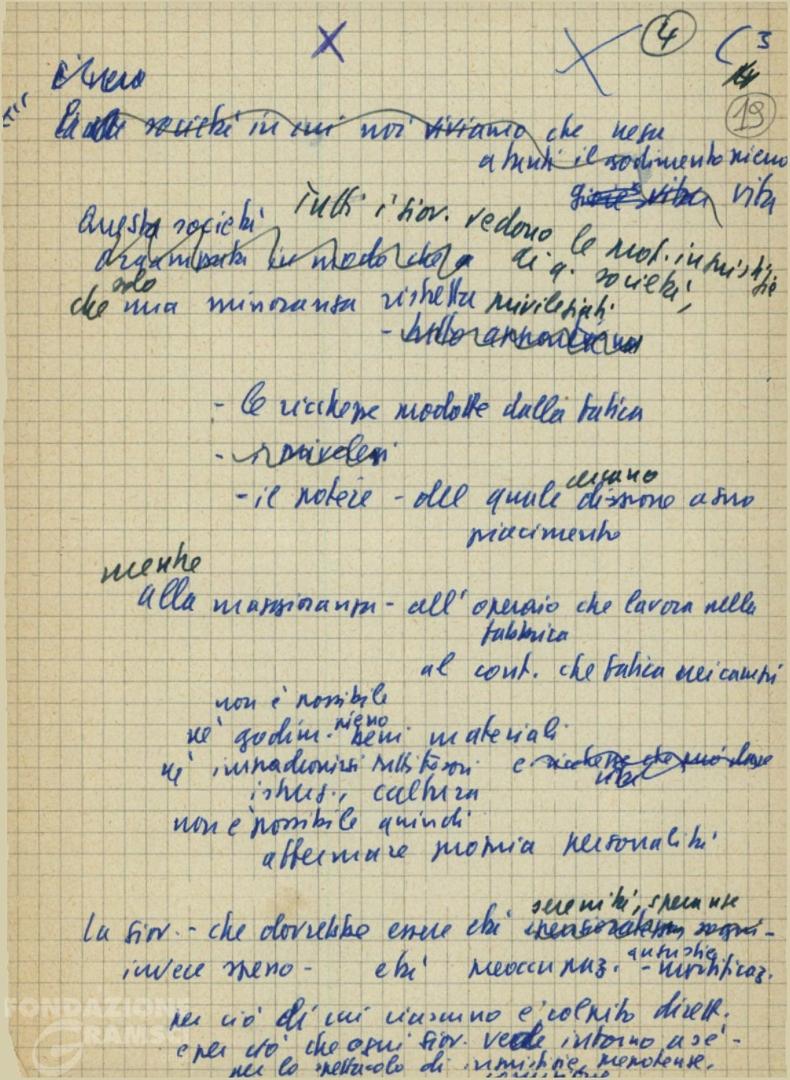 X
4
( 3
19
È vero
società in cui noi viviamo che nega
a tanti il godimento pieno
gioie vita vita
Questa società Tutti i giov. vedono le prof. ingiustizie
organizzata in modo che di q. società,
che solo una minoranza ristretta privilegiati
- le ricchezze prodotte dalla fatica
- i privilegi
- il potere - del quale dispone a suo
piacimento
mentre
alla maggioranza - all'operaio che lavora nella
fabbrica
al cont. che fatica nei campi
non è possibile
nè godim. pieno beni materiali
nè impadronirsi tesori e ricchezze che può dare
istruz., cultura
non è possibile quindi
affermare propria personalità
serenità, speranze
La giov. - che dovrebbe essere età sogni -
invece spesso - età preoccupaz. - angustie - mortificaz.
per ciò di cui ciascuno è colpito dirett.
e per ciò che ogni giov. vede intorno a sè -
per lo spettacolo di ingiustizie, prepotenze,
FONDAZIONE
GRAMSCI